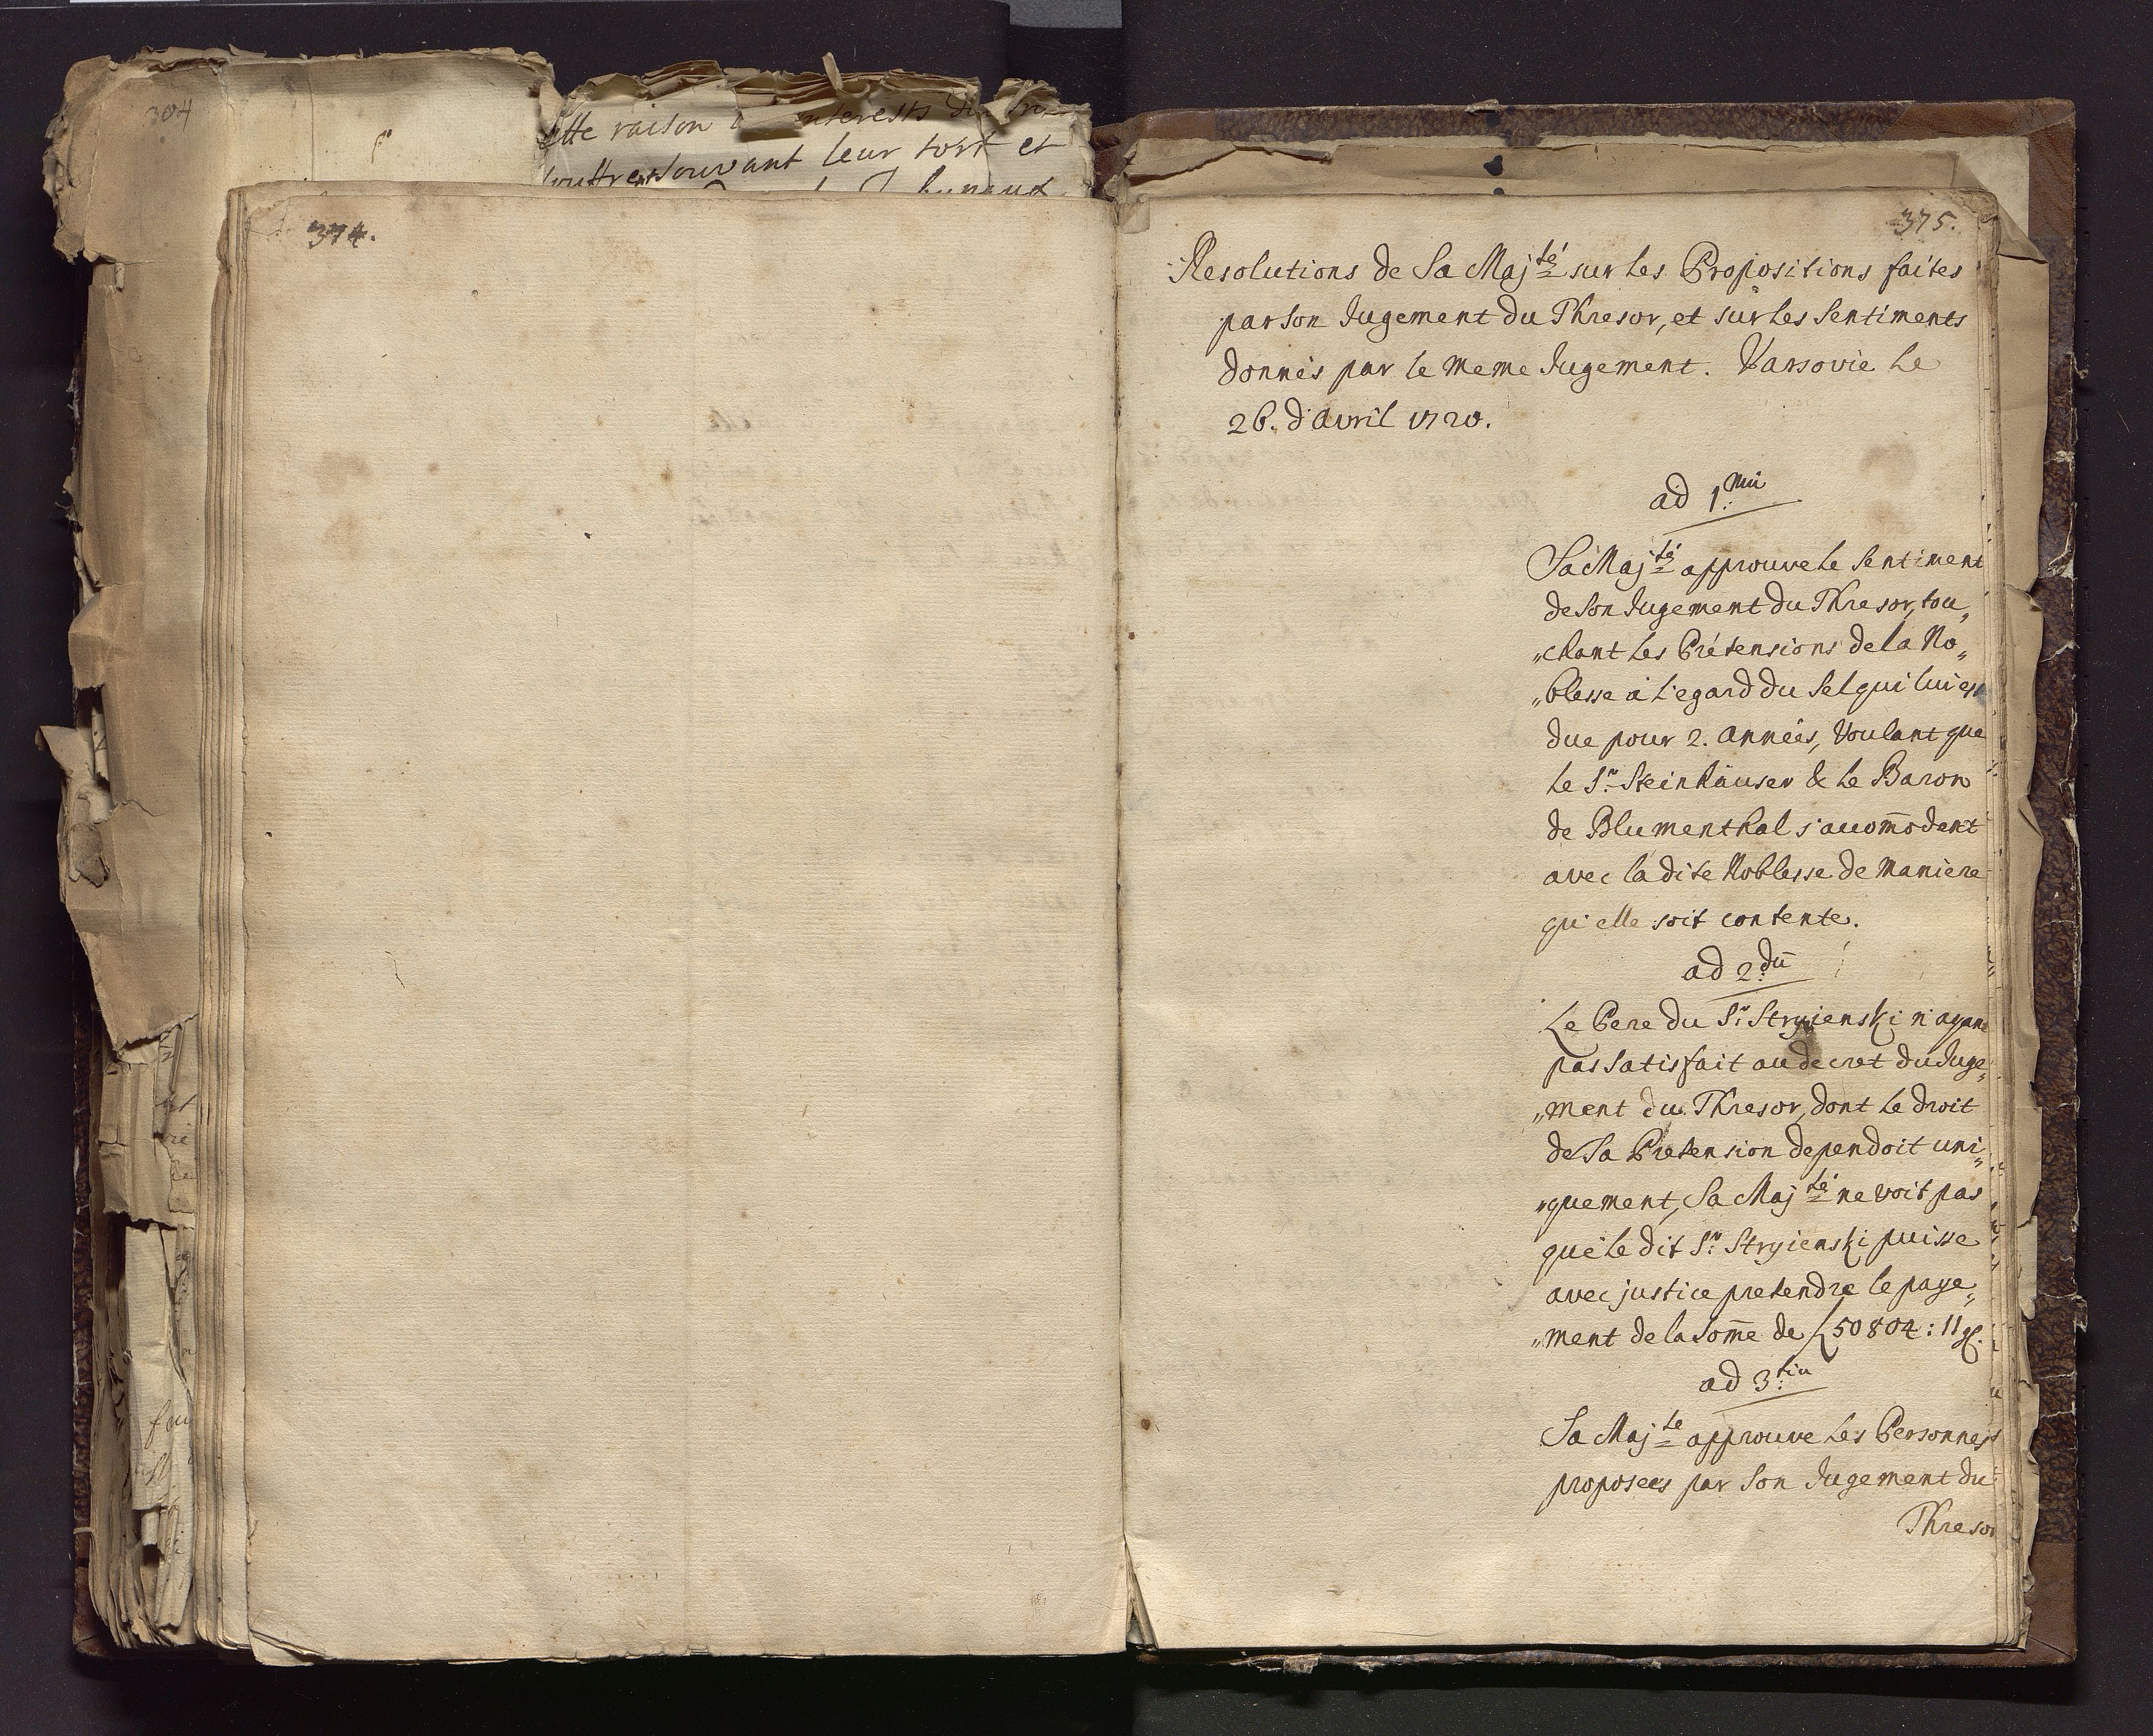 304
cette raison
souvant leur tort et
374.
375.
Resolutions de Sa Maj.té sur les Propositions faites
par son Jugement du Thresor, et sur les Sentiments
donnés par le meme Jugement. Varsovie le
26. d'avril 1720.
ad 1.mū
Sa Maj.té approuve le Sentiment
de son Jugement du Thresor, tou„
„chant les Prétensions de la No„
„blesse à l'egard du Sel qui lui est
due pour 2. années, voulant que
le S.r Steinhäuser & le Baron
de Blumenthal s'accom̄odent
avec la dite Noblesse de maniere
qu'elle soit contente.
ad 2.dū
Le Pere du S.r Stryienski n'ayant
pas satisfait au decret du Juge„
„ment du Thresor, dont le droit
de Sa Pretension dependoit uni„
„quement, Sa Maj.té ne voit pas
que le dit S.r Stryienski puisse
avec justice pretendre le paye„
„ment de la Som̄e de f 50804: 11 gl.
ad 3.tiu
Sa Maj.té approuve les Personnes
proposees par son Jugement du
Thresor